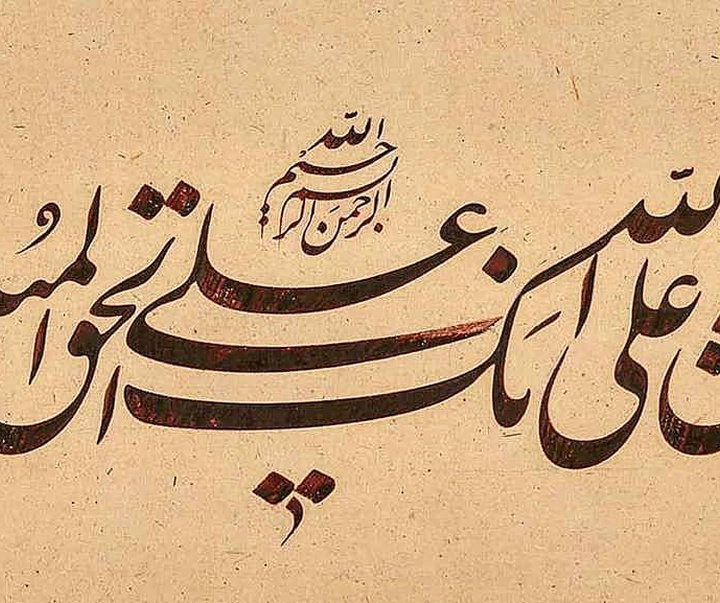 بسم الله الرحمن الرحيم
على الله انك على الحق